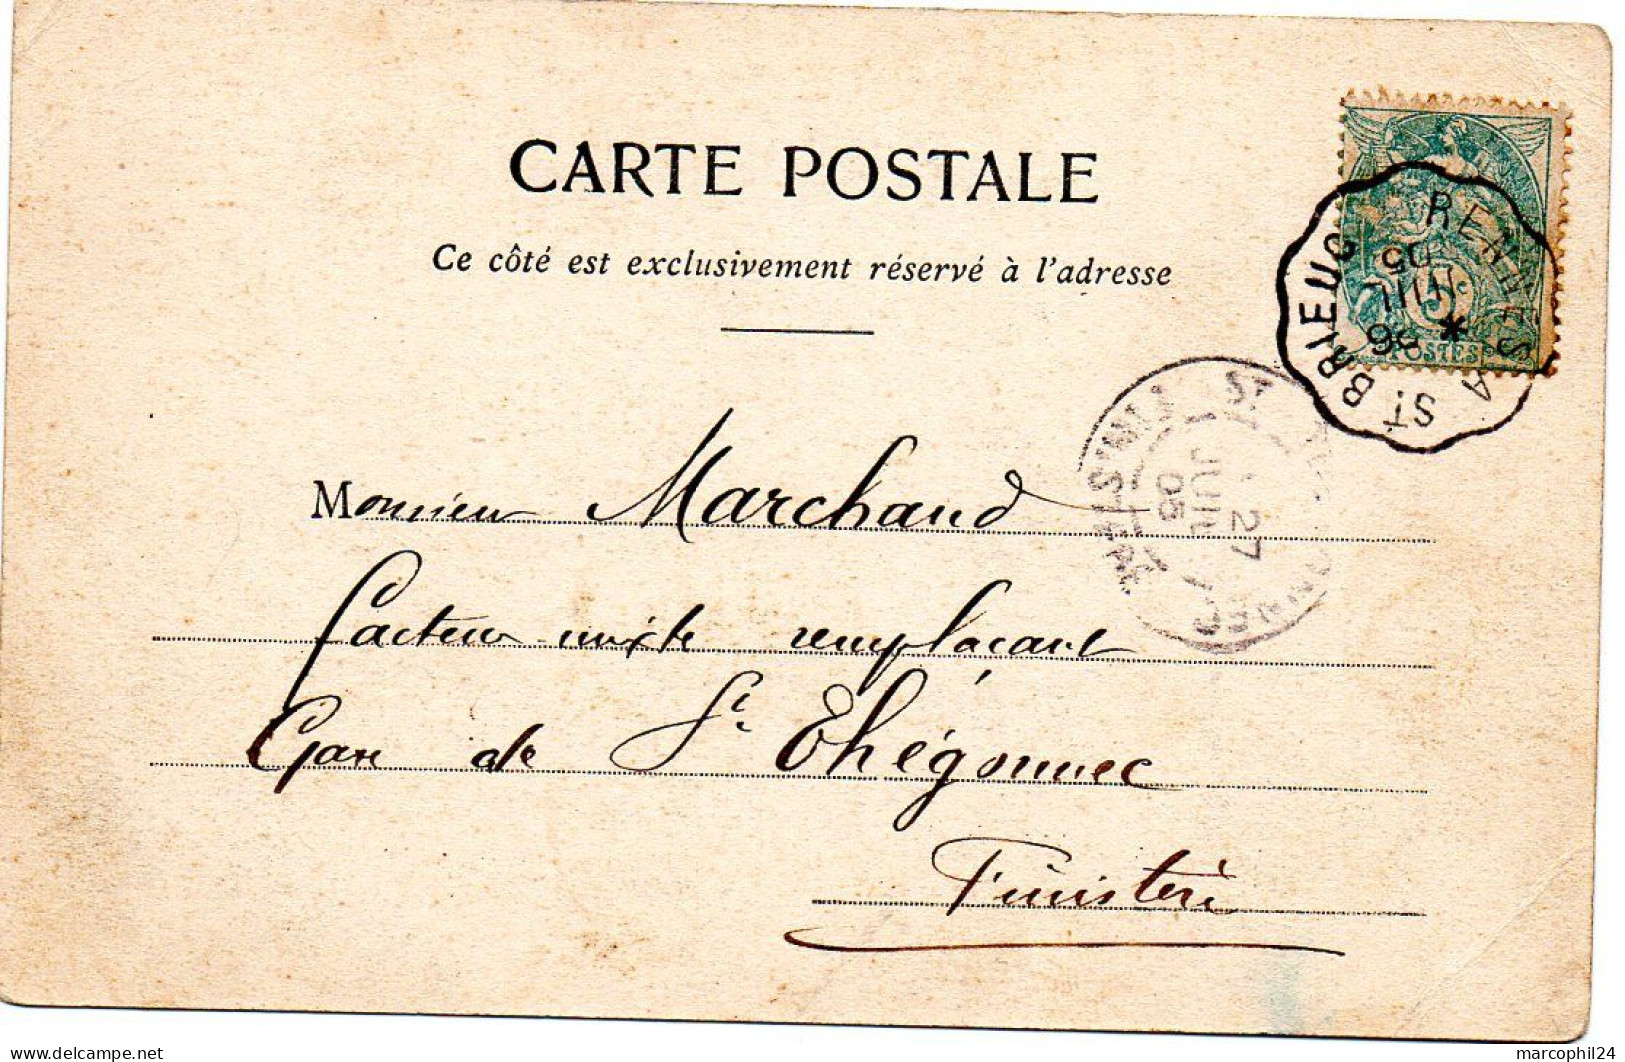 CARTE POSTALE
Ce côté est exclusivement réservé à l'adresse
Monsieur Marchand
Facteur mixte remplaçant
Gare de St. Thégonnec
Finistère
RENNES A ST BRIEUC
* 26
JUIL
05
POSTES
ST
27
JUIL
05
FINISTERE
marcophil24